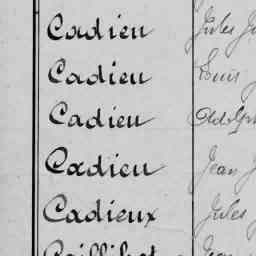 Cadieu Jules
Cadieu Louis
Cadieu Adolph
Cadieu Jean J
Cadieux Jules